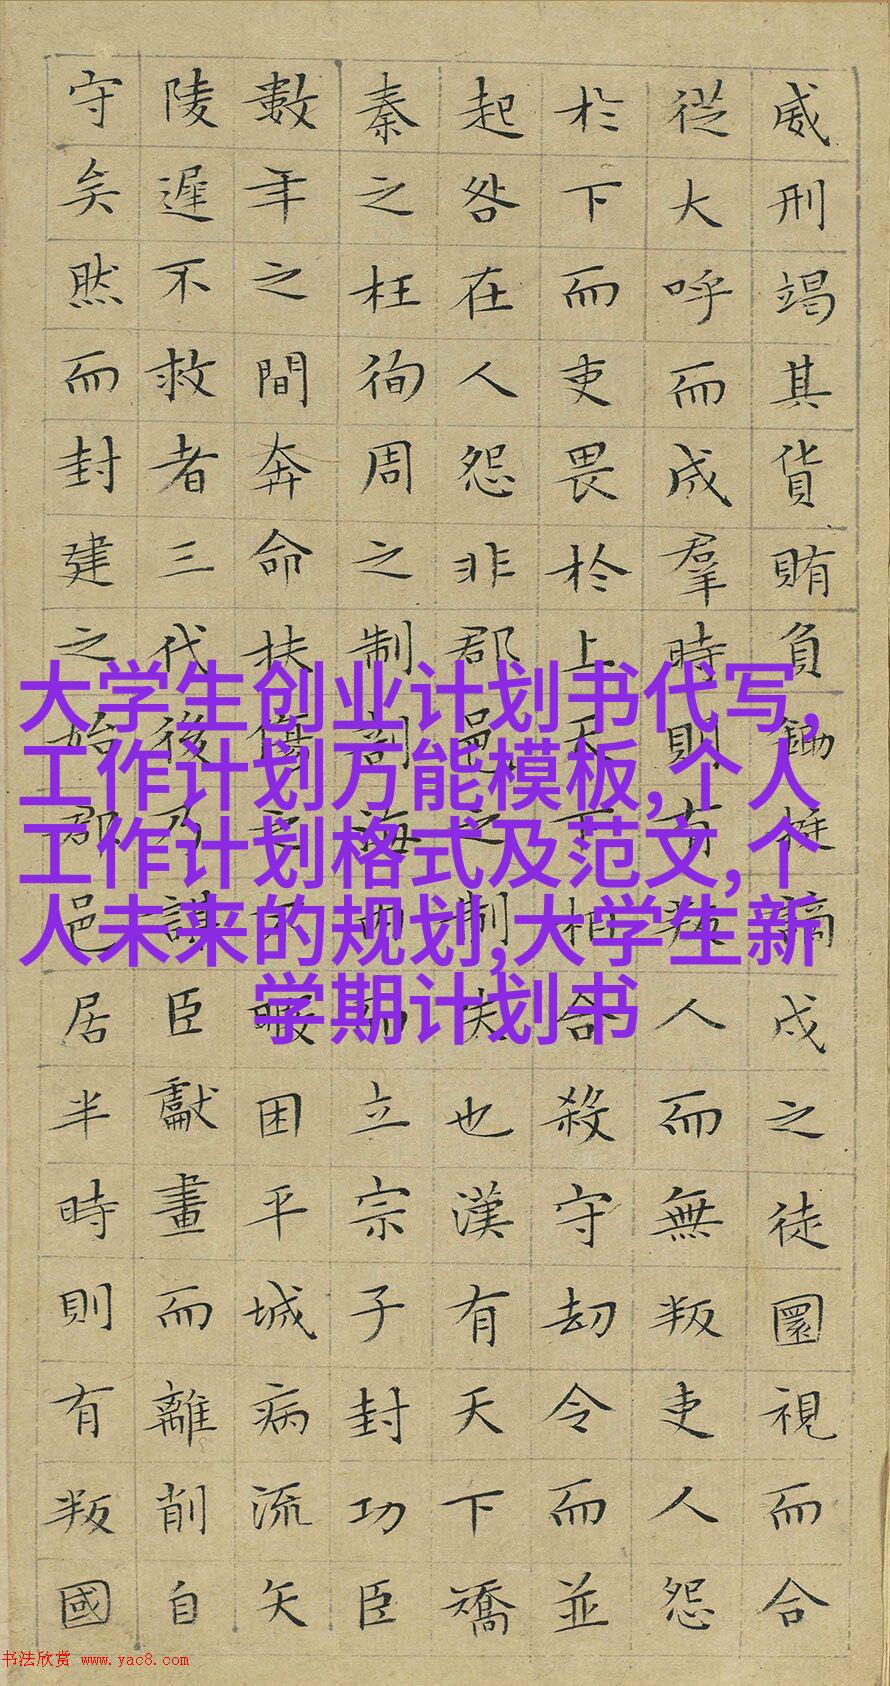 威刑竭其貨賄負鋤梃謫戍之徒圜視而合
從大呼而成羣時則有叛人而無叛吏人怨
於下而吏畏於上天下相合殺守劫令而並
起咎在人怨非郡邑之制失也漢有天下矯
秦之枉徇周之制剖海內而立宗子封功臣
數年之間奔命扶傷之不暇困平城病流矢
陵遲不救者三代後乃謀臣獻畫而離削自
守矣然而封建之始郡邑居半時則有叛國
大学生创业计划书代写,
工作计划万能模板,个人
工作计划格式及范文,个
人未来的规划,大学生新
学期计划书
书法欣赏 www.yac8.com